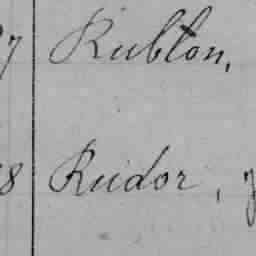 7 Rubton,
8 Rudor,